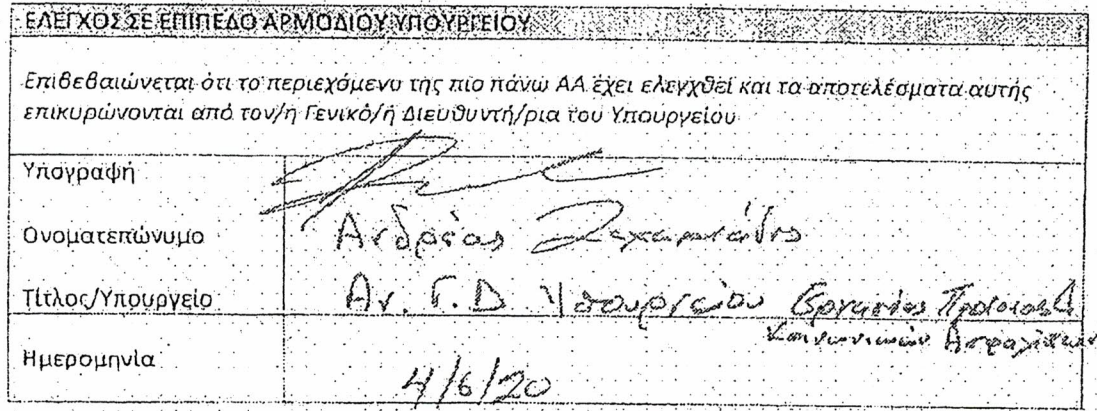 ΕΛΕΓΧΟΣ ΣΕ ΕΠΙΠΕΔΟ ΑΡΜΟΔΙΟΥ ΥΠΟΥΡΓΕΙΟΥ
Επιβεβαιώνεται ότι το περιεχόμενο της πιο πάνω ΑΑ έχει ελεγχθεί και τα αποτελέσματα αυτής
επικυρώνονται από τον/η Γενικό/ή Διευθυντή/ρια του Υπουργείου
Υπογραφή
Ονοματεπώνυμο Ανδρέας Ζαχαριάδης
Τίτλος/Υπουργείο Αν. Γ.Δ Υπουργείου Εργασίας Πρόνοιας &
Κοινωνικών Ασφαλίσεων
Ημερομηνία 4/6/20